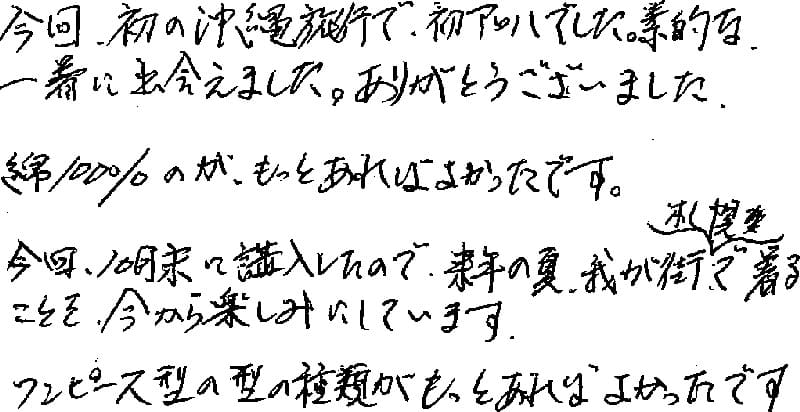 今回、初の沖縄旅行で、初アロハでした。素的な、
一着に出会えました。ありがとうございました、
綿100%のが、もっとあればよかったです。
今回、10月末に講入したので、来年の夏、我が街、で着る
ことを、今から楽しみにしています。
ワンピース型の型の種類がもっとあればよかったです